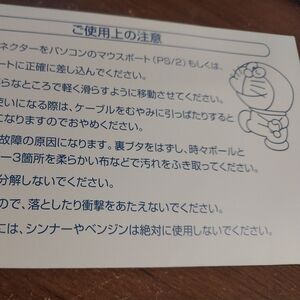 ご使用上の注意
ネクターをパソコンのマウスポート(PS/2)もしくは、
ートに正確に差し込んでください。
らなところで軽く滑らすように移動させてください。
使いになる際は、ケーブルをむやみに引っぱたりすると
になりますのでおやめください。
故障の原因になります。裏ブタをはずし、時々ボールと
ー3箇所を柔らかい布などで汚れをふき取ってください。
分解しないでください。
ので、落としたり衝撃をあたえないでください。
には、シンナーやベンジンは絶対に使用しないでください。